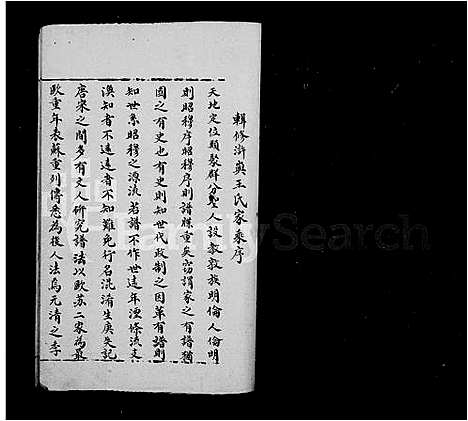 輯修游奧王氏家乘序
天地定位類聚群分聖人設教敦族明倫人倫明
則昭穆序昭穆序則譜牒重矣窃謂家之有譜猶
國之有史也有史則知世代政制之因革有譜則
知世系昭穆之源流若譜不作世遠年湮條流支
漠知者不遠遠者不知難免行名混淆生庚失記
唐宋之間多有文人研究譜法以欧苏二家為最
欧重年表蘇重列傳悉為後人法焉元清之李
FamilySearch